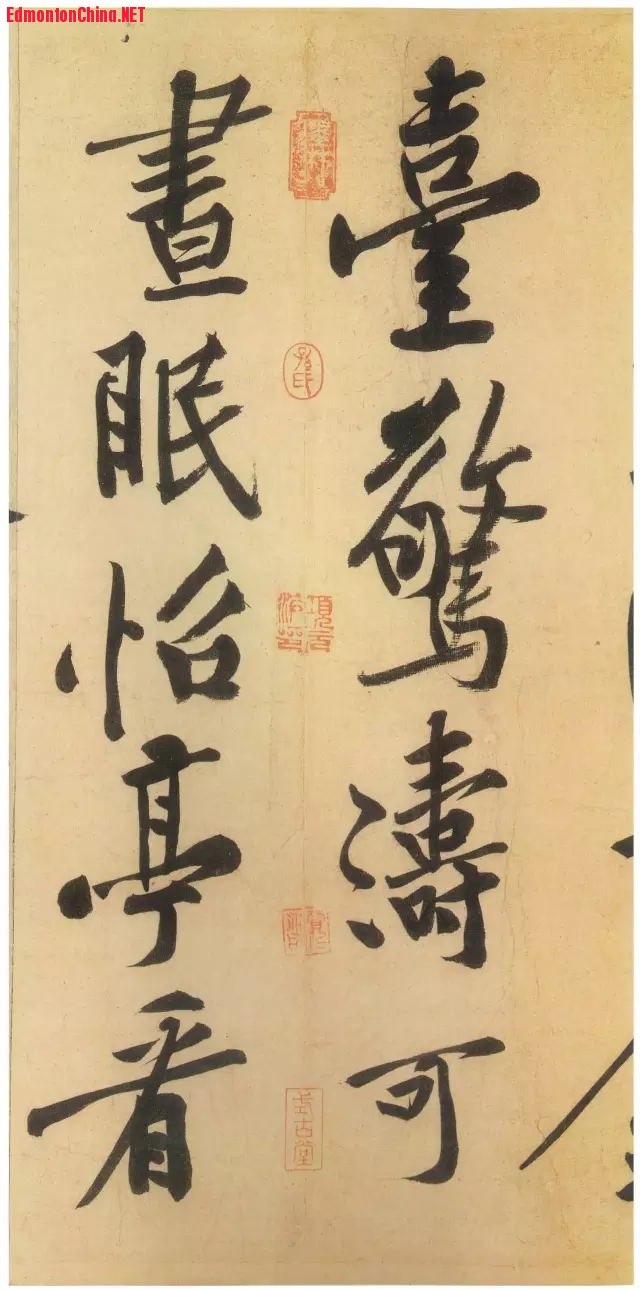 EdmontonChina.NET
臺驚濤可
晝眠怡亭看
式古堂